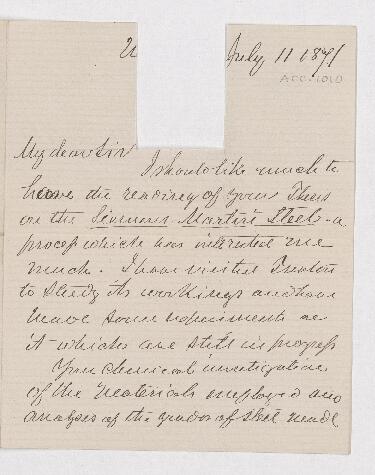 July 11 1871
ACC. 1010
My dear Sir
I should like much to
have the reading of your Thesis
on the Siemens Martin Steel - a
process which has interested me
much. I have visited Trenton
to study its workings and have
made some experiments on
it which are still in progress
Your chemical investigation
of the materials employed and
analyses of the grades of steel made